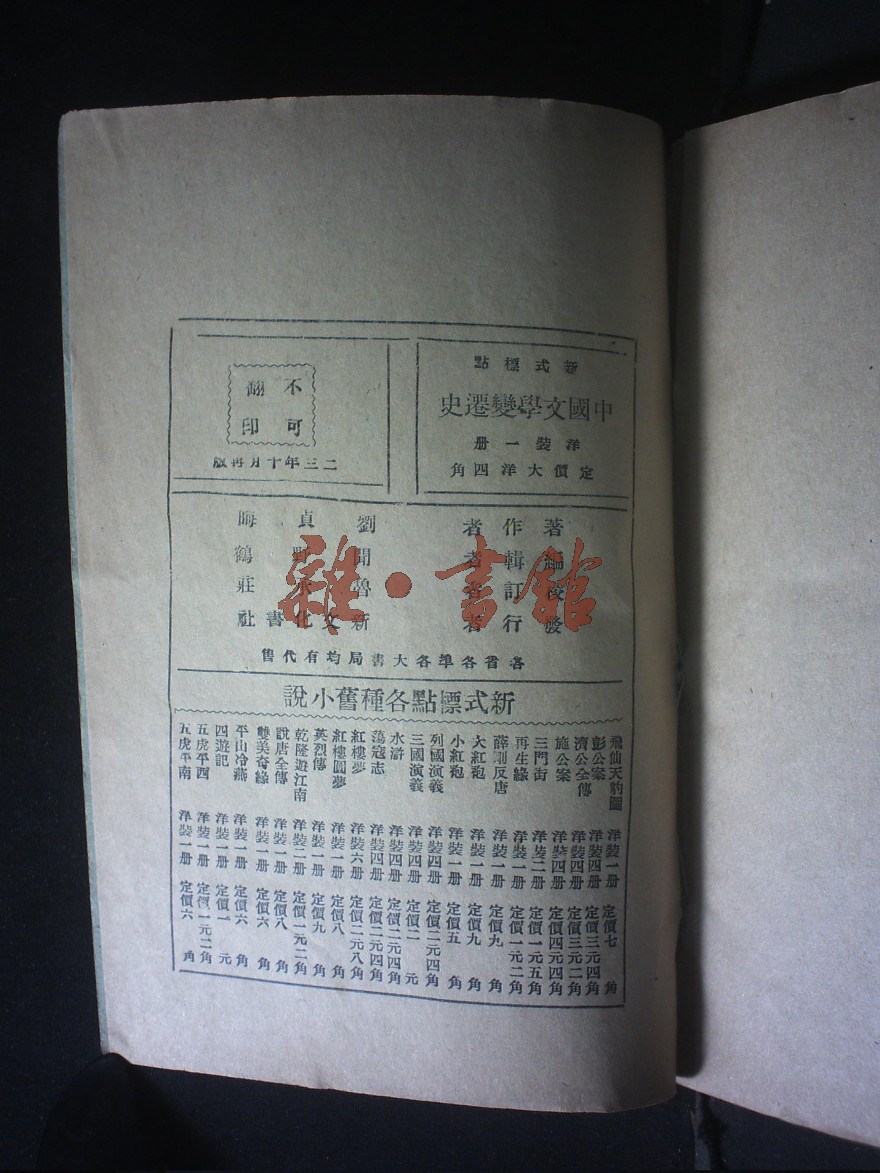 新式標點
中國文學變遷史
洋裝一册
定價大洋四角
不可翻印
二三年十月再版
著作者 劉貞晦
編輯者 聞野鶴
校訂者 魯水莊
發行者 新文化書社
各省各埠各大書局均有代售
雜·書館
新式標點各種舊小說
飛仙天豹圖 洋裝一册 定價七角
彭公案 洋裝四册 定價三元四角
濟公全傳 洋裝四册 定價三元二角
施公案 洋裝四册 定價四元四角
三門街 洋裝二册 定價一元五角
再生緣 洋裝一册 定價一元二角
薛剛反唐 洋裝一册 定價九角
大紅袍 洋裝一册 定價九角
小紅袍 洋裝一册 定價五角
列國演義 洋裝四册 定價二元四角
三國演義 洋裝四册 定價二元
水滸 洋裝四册 定價二元四角
蕩寇志 洋裝四册 定價二元四角
紅樓夢 洋裝六册 定價二元八角
紅樓圓夢 洋裝一册 定價八角
英烈傳 洋裝一册 定價九角
乾隆遊江南 洋裝二册 定價一元二角
說唐全傳 洋裝一册 定價八角
雙美奇緣 洋裝一册 定價六角
平山冷燕 洋裝一册 定價六角
四遊記 洋裝一册 定價一元
五虎平西 洋裝一册 定價一元二角
五虎平南 洋裝一册 定價六角